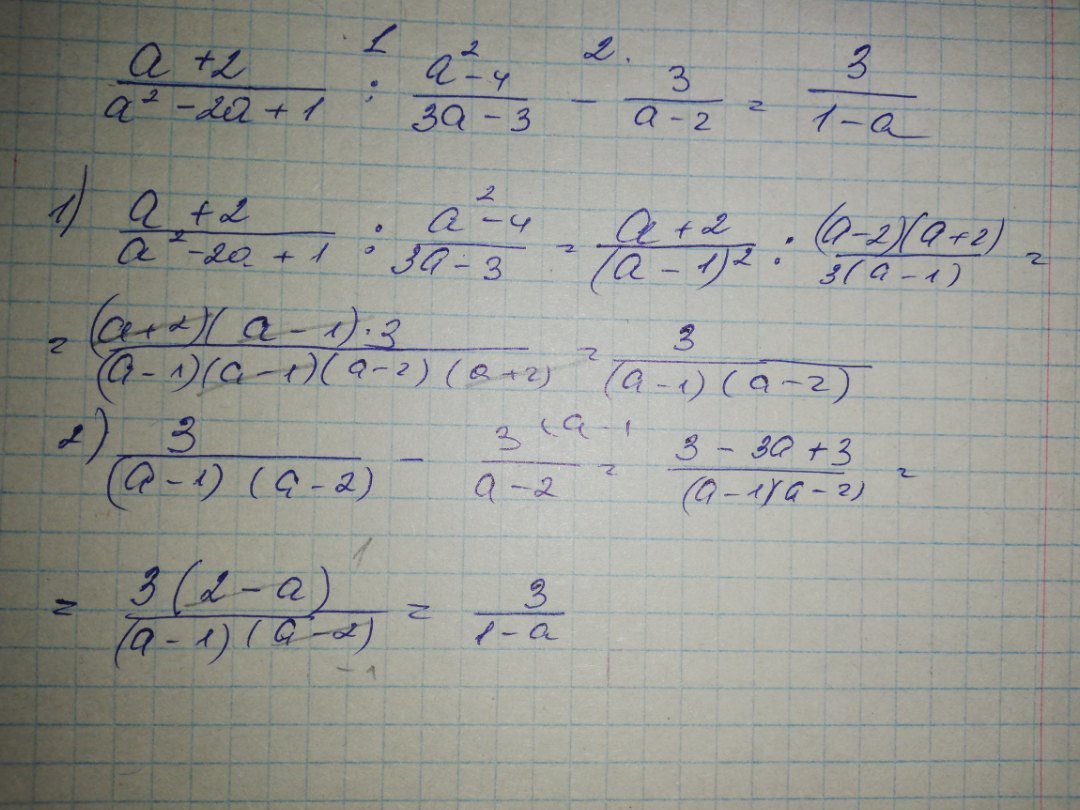 (a + 2)/(a² - 2a + 1) : (a² - 4)/(3a - 3) - 3/(a - 2) = 3/(1 - a)
1) (a + 2)/(a² - 2a + 1) : (a² - 4)/(3a - 3) = (a + 2)/(a - 1)² : (a - 2)(a + 2)/3(a - 1) =
= (a + 2)(a - 1) · 3/(a - 1)(a - 1)(a - 2)(a + 2) = 3/(a - 1)(a - 2)
2) 3/(a - 1)(a - 2) - 3 (a - 1/(a - 2) = (3 - 3a + 3)/(a - 1)(a - 2) =
= 3(2 - a)/(a - 1)(a - 2) = 3/(1 - a)